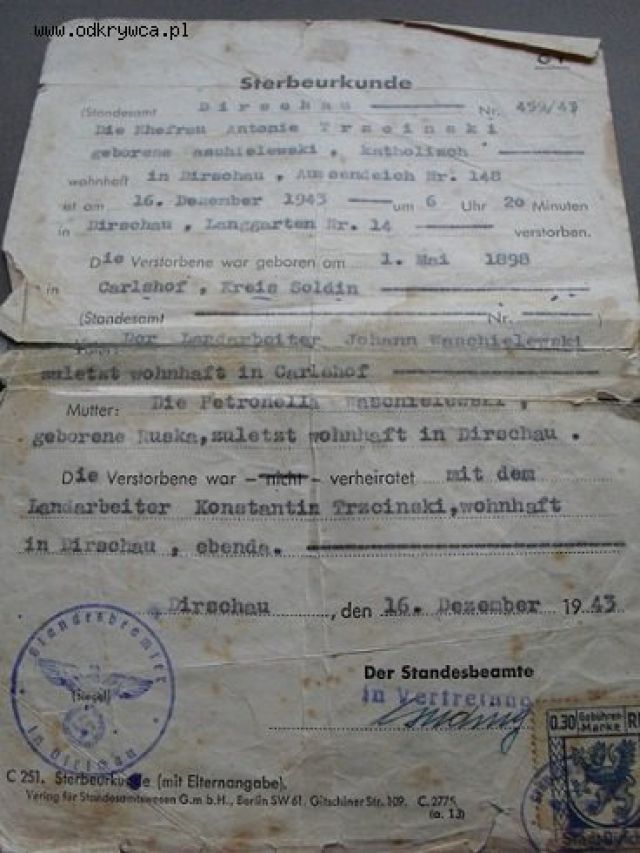 www.odkrywca.pl
Sterbeurkunde
(Standesamt Dirschau Nr. 459/43
Die Ehefrau Antonie Trzcinski
geborene Waschielewski, katholisch
wohnhaft in Dirschau, Aussendeich Nr. 148
ist am 16. Dezember 1943 um 6 Uhr 20 Minuten
in Dirschau, Langgarten Nr. 14 verstorben.
Die Verstorbene war geboren am 1. Mai 1898
in Carlshof, Kreis Soldin
(Standesamt Nr. )
Der Landarbeiter Johann Waschielewski
zuletzt wohnhaft in Carlshof
Mutter: Die Petronella Waschielewski,
geborene Ruska, zuletzt wohnhaft in Dirschau.
Die Verstorbene war - nicht - verheiratet mit dem
Landarbeiter Konstantin Trzcinski, wohnhaft
in Dirschau, ebenda.
Dirschau, den 16. Dezember 1943
Der Standesbeamte
In Vertretung
Standesbeamter
(Siegel)
in Dirschau
0.30 Gebühren Marke
C 251. Sterbeurkunde (mit Elternangabe).
Verlag für Standesamtswesen G.m.b.H., Berlin SW 61, Gitschiner Str. 109. C 2775